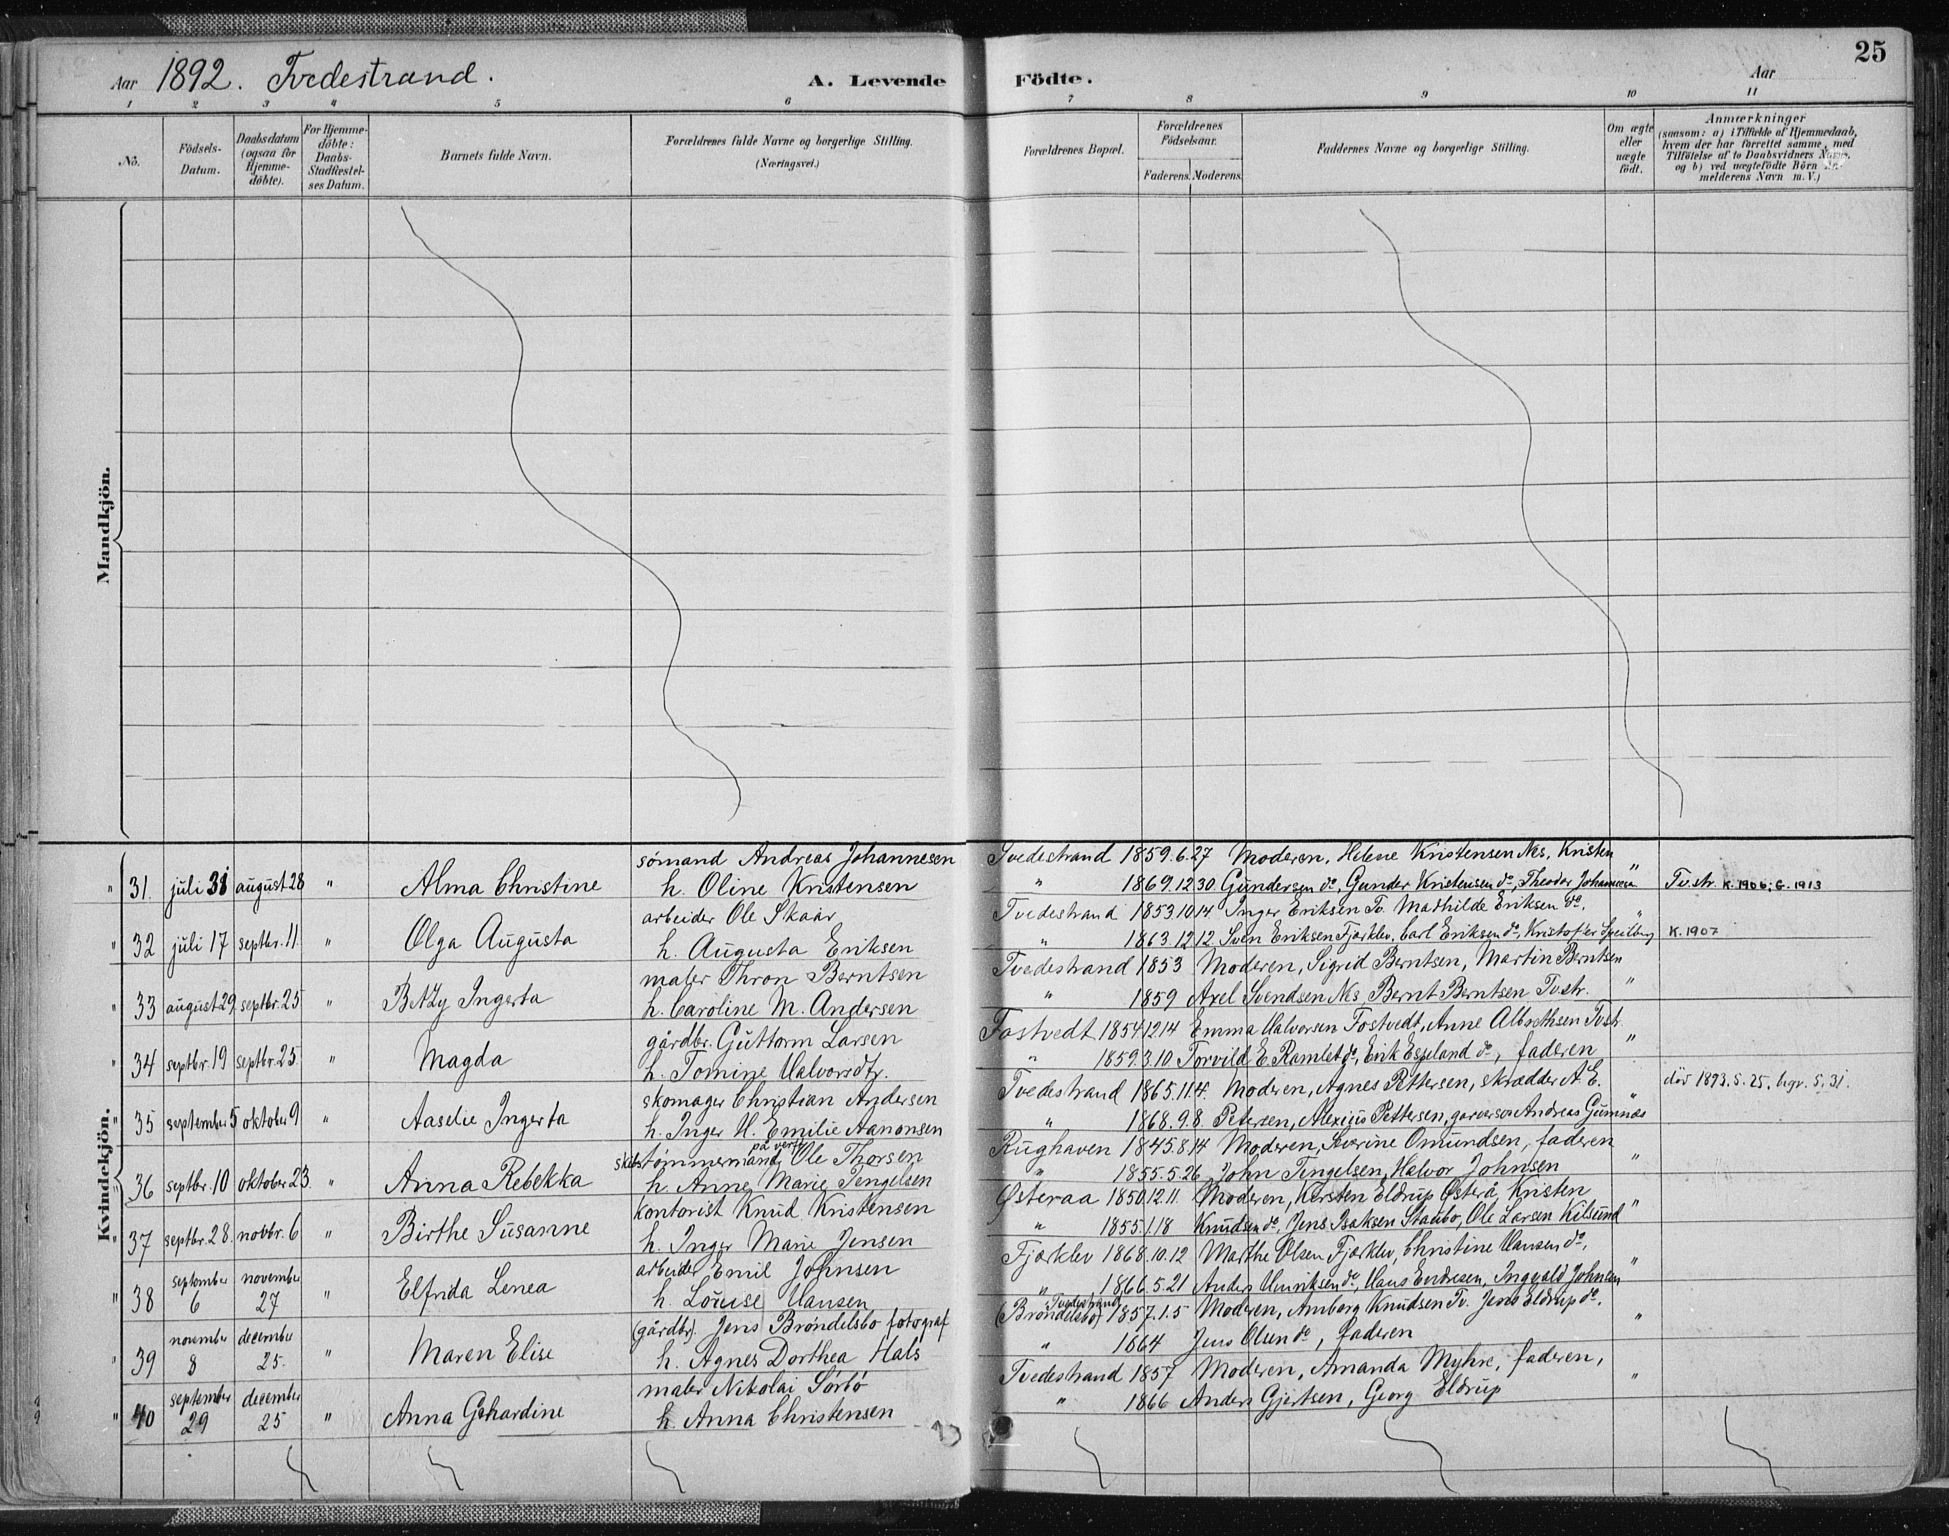 25
Aar 1892. Tvedestrand. A. Levende Födte. Aar
1 2 3 4 5 6 7 8 9 10 11
No.
Födsels-
Datum.
Daabsdatum
(ogsaa for
Hjemme-
döbte).
For Hjemme-
döbte:
Daabs-
Stadfæstel-
ses Datum.
Barnets fulde Navn.
Forældrenes fulde Navne og borgerlige Stilling.
(Næringsvei.)
Forældrenes Bopæl.
Forældrenes
Födselsaar.
Faderens. Moderens.
Faddernes Navne og borgerlige Stilling.
Om ægte
eller
uægte
födt.
Anmærkninger
(saasom: a) i Tilfælde af Hjemmedaab,
hvem der har forrettet samme, med
Tilföielse af to Daabsvidners Navne,
og b) ved uægtefödte Börn An-
melderens Navn m. V.)
Mandkjön.
Kvindekjön.
sömand Andreas Johannesen Tvedestrand 1859.6.27 Moderen, Helene Kristensen Nes, Kristen "
" 31. juli 31 august 28 " Alma Christine h. Oline Kristensen " 1869.12.30. Gundersen do, Gunder Kristensen do, Theodor Johannesen Tvstr. K. 1906; G. 1913
arbeider Ole Skaar Tvedestrand 1853.10.14 Inger Eriksen Tv. Mathilde Eriksen do. "
" 32 juli 17 septbr. 11 " Olga Augusta h. Augusta Eriksen " 1863.12.12. Sven Eriksen Fjærklev, Carl Eriksen do, Kristoffer Speilberg K. 1907
maler Thron Berntsen Tvedestrand 1853 Moderen, Sigrid Berntsen, Martin Berntsen
" 33 august 29. septbr. 25 " Betzy Ingerta h. Caroline M. Andersen " 1859 Axel Svendsen Nes, Bernt Berntsen Tvstr. "
gårdbr. Guttorm Larsen Fostvedt 1854.12.14 Emma Halvorsen Fostvedt, Anne Albrethsen Tvstr.
" 34 septbr. 19 septbr. 25. " Magda h. Tomine Halvorsdtr. " 1859.3.10. Torvild E. Ramlet do, Erik Esseland do, faderen "
skomager Christian Andersen Tvedestrand 1865.11.4. Moderen, Agnes Pettersen, skrædder A. E. död 1893.5.25. begr. 5.31.
" 35 september 5 oktober 9 " Aaselie Ingerta h. Inger H. Emilie Aanonsen " 1868.9.8. Petersen, Alexius Pettersen, garversv. Andreas Gumnæs "
på verft
skibstömmermand Ole Thorsen Rughaven 1845.8.14 Moderen, Severine Omundsen, faderen
" 36 septbr. 10 oktober 23. " Anna Rebekka h. Anne Marie Tengelsen " 1855.5.26. John Tengelsen, Halvor Johnsen "
kontorist Knud Kristensen Østeraa 1850.12.11. Moderen, Kirsten Eldrup Østerå, Kristen
" 37 septbr. 28. novbr. 6 " Birthe Susanne h. Inger Marie Jensen " 1855.1.18 Knudsen do, Jens Isaksen Staubo, Ole Larsen Kilsund "
arbeider Emil Johnsen Fjærklev 1868.10.12 Marthe Olsen Fjærklev, Christine Hansen do, "
" 38 september 6 november 27 " Elfrida Lenea h. Louise Hansen " 1866.5.21 Anders Henriksen do, Hans Endresen, Ingvald Johnsen
Tvedestrand
(gårdbr). Jens Bröndelsbo fotograf (Bröndelsbo) 1857.1.5 Moderen, Amborg Knudsen Tv. Jens Eldrup do. "
" 39 november 8 december 25. " Maren Elise h. Agnes Dorthea Hals " 1864 Jens Olsen do, faderen
maler Nikolai Sörbö Tvedestrand 1857 Moderen, Amanda Myhre, faderen, "
" 40 september 29 december 25 " Anna Gehardine h. Anna Christensen " 1866 Anders Gjertsen, Georg Eldrup